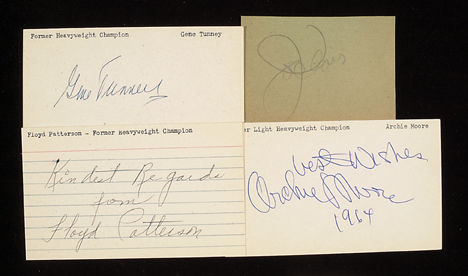 Former Heavyweight Champion Gene Tunney
Gene Tunney
Joe Louis
Floyd Patterson - Former Heavyweight Champion
Kindest Regards
from
Floyd Patterson
er Light Heavyweight Champion Archie Moore
best Wishes
Archie Moore
1964